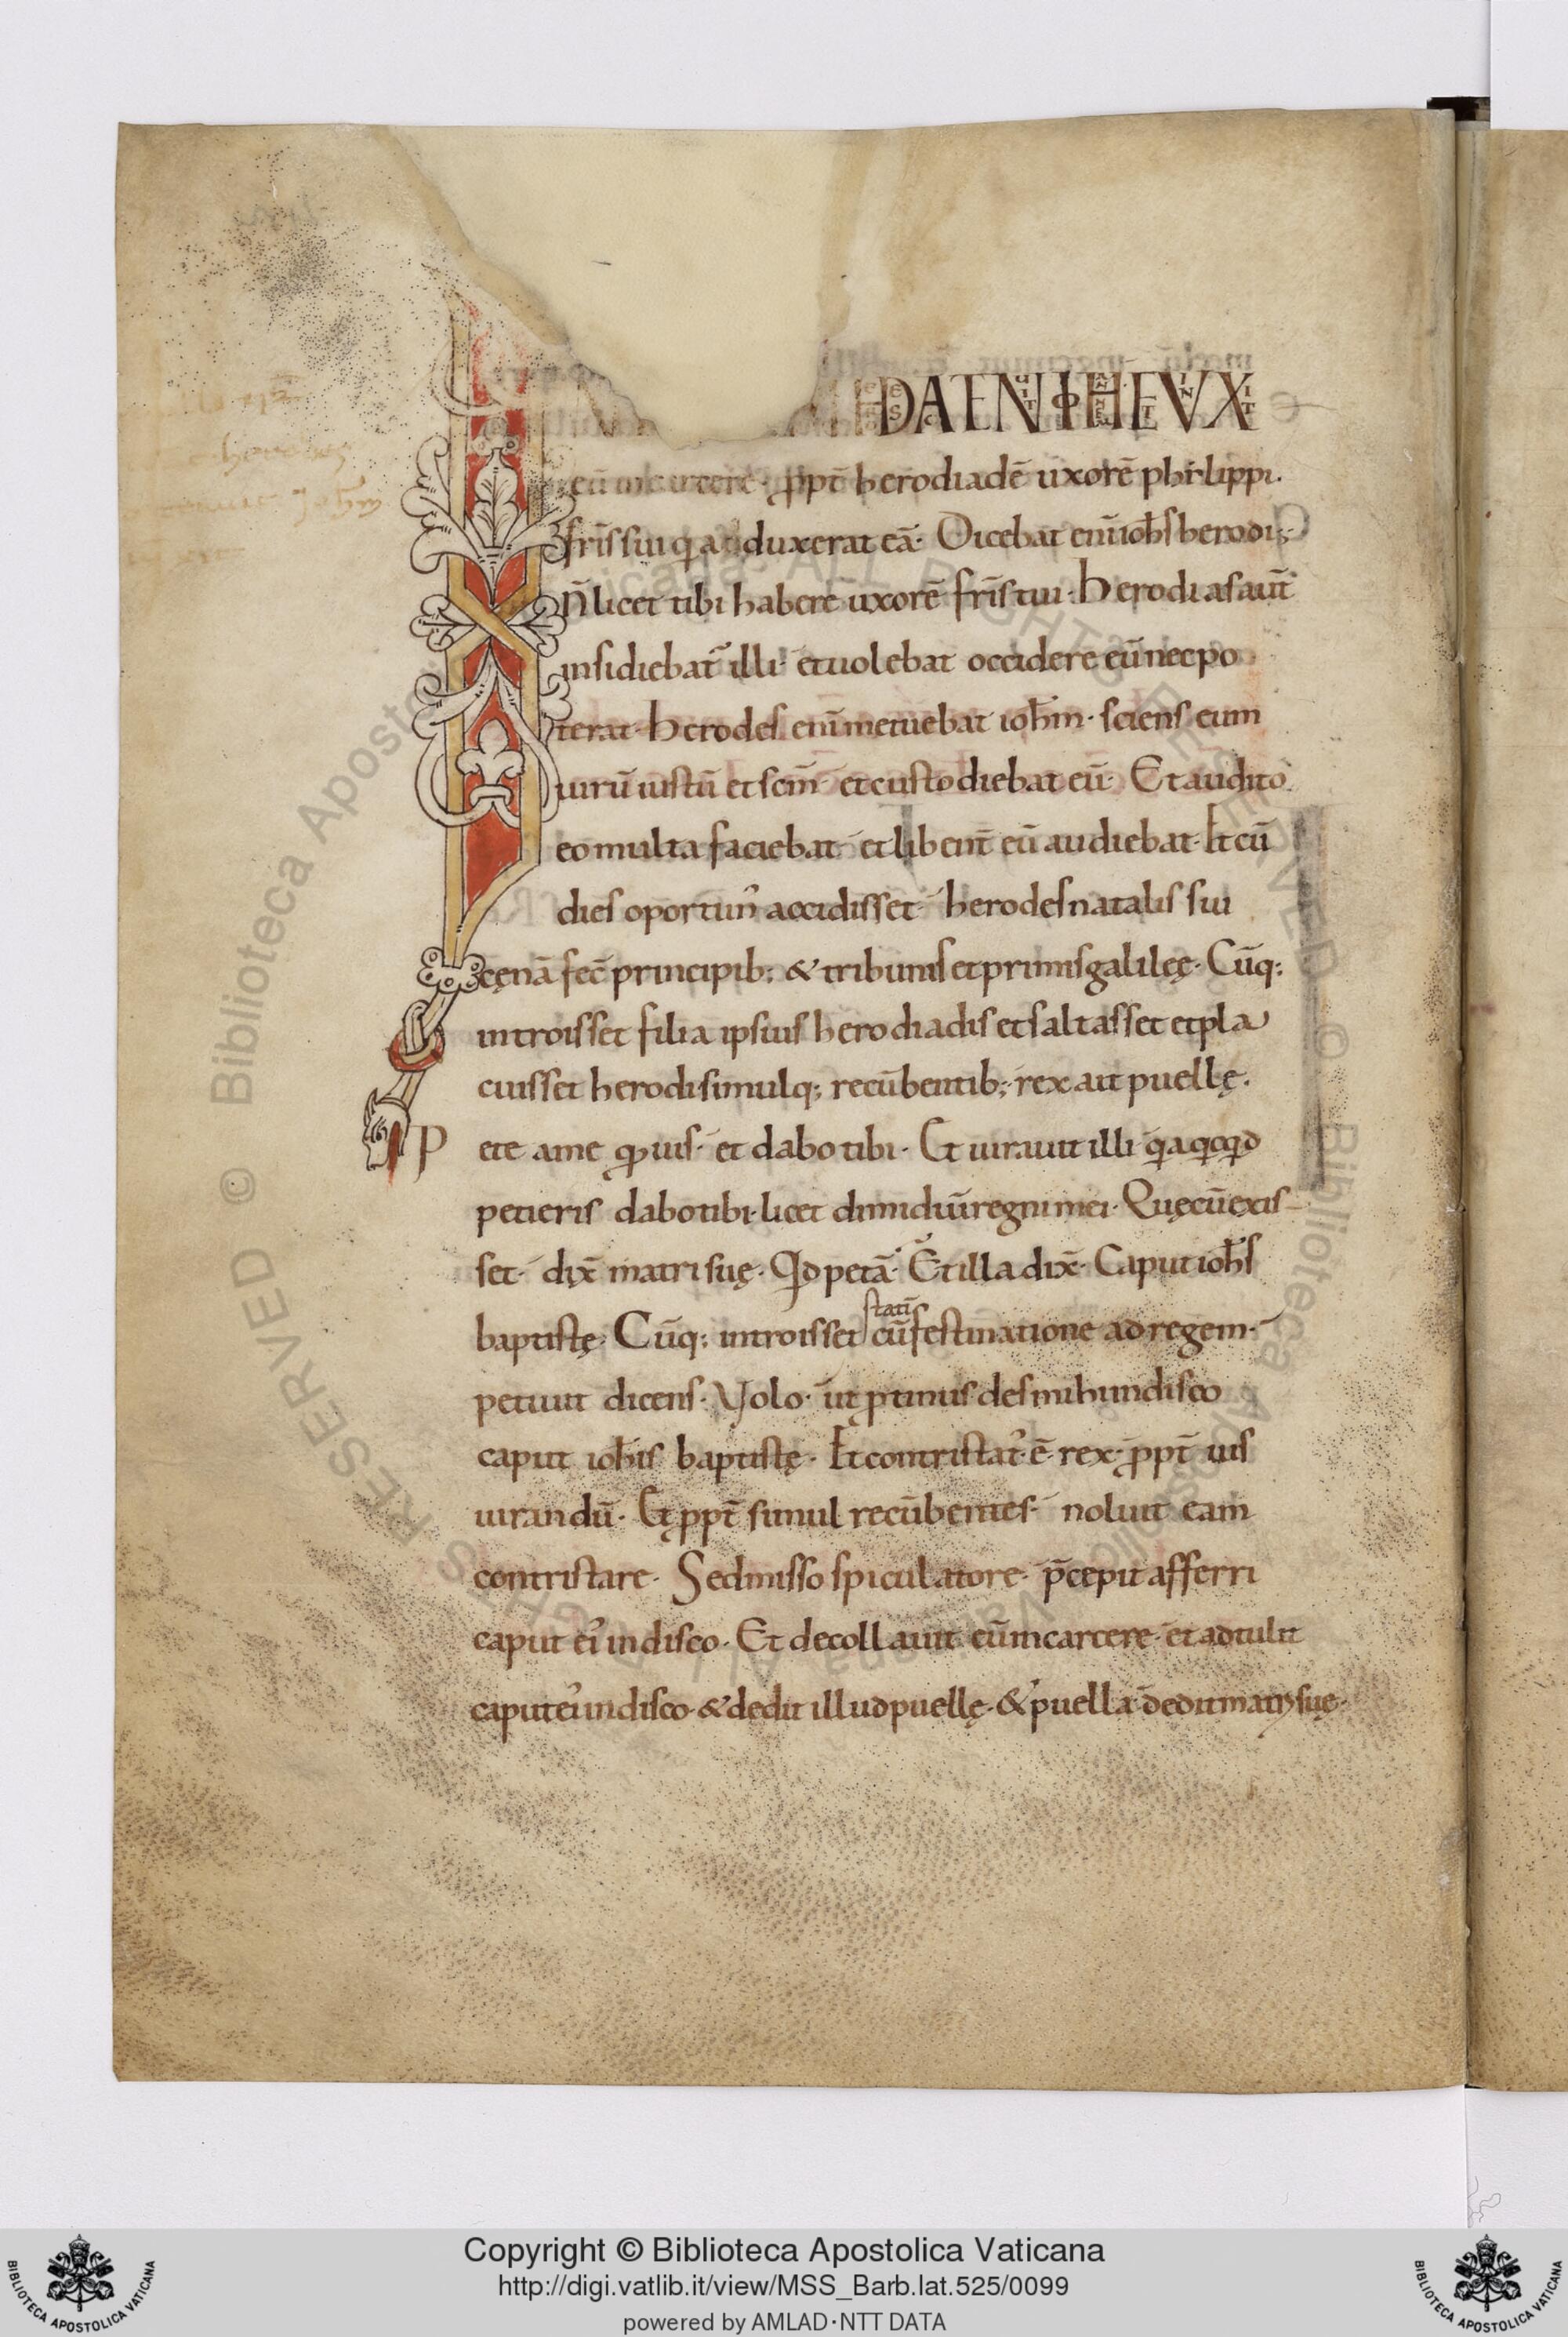 eū in carcere · ꝓpt̄ herodiadē uxorē philippi.
fr̄is sui q̄a duxerat eā· Dicebat enī ioh̄s herodi;
N̄ licet tibi habere uxorē fr̄is tui · Herodias aut̄
insidiebat᷑ illi · et uolebat occidere eū nec po
terat · herodes enī metuebat ioh̄m · sciens eum
uirū iustū et sc̄m · et custodiebat eū · Et audito
eo multa faciebat · et libent̄ eū audiebat · Et cū
dies oportun᷒ accidisset · herodes natalis sui
cęnā fec̄ principib; & tribunis et primis galilęę · Cūq;
introisset filia ipsius herodiadis et saltasset et pla
cuisset herodi simulq; recūbentib; rex ait puellę.
P ete a me qd uis · et dabo tibi · Et iurauit illi q̄a qcqd
petieris dabo tibi · licet dimidiū regni mei · Quę cū exis
set · dix̄ matri suę · Qd petā · Et illa dix̄ · Caput ioh̄s
baptistę · Cūq; introisset statī cū festinatione ad regem ·
petiuit dicens · Volo · ut ꝓtinus des mihi in disco
caput ioh̄is baptistę · Et contristat᷒ ē rex · ꝓpt̄ ius
iurandū · Et ꝓpt̄ simul recūbentes · noluit eam
contristare · Sed misso spiculatore · p̄cepit afferri
caput ei᷒ in disco · Et decollauit eū in carcere · et adtulit
caput ei᷒ in disco · & dedit illud puellę · & puella dedit matri suę ·
Copyright © Biblioteca Apostolica Vaticana
http://digi.vatlib.it/view/MSS_Barb.lat.525/0099
powered by AMLAD·NTT DATA
BIBLIOTECA APOSTOLICA VATICANA
BIBLIOTECA APOSTOLICA VATICANA